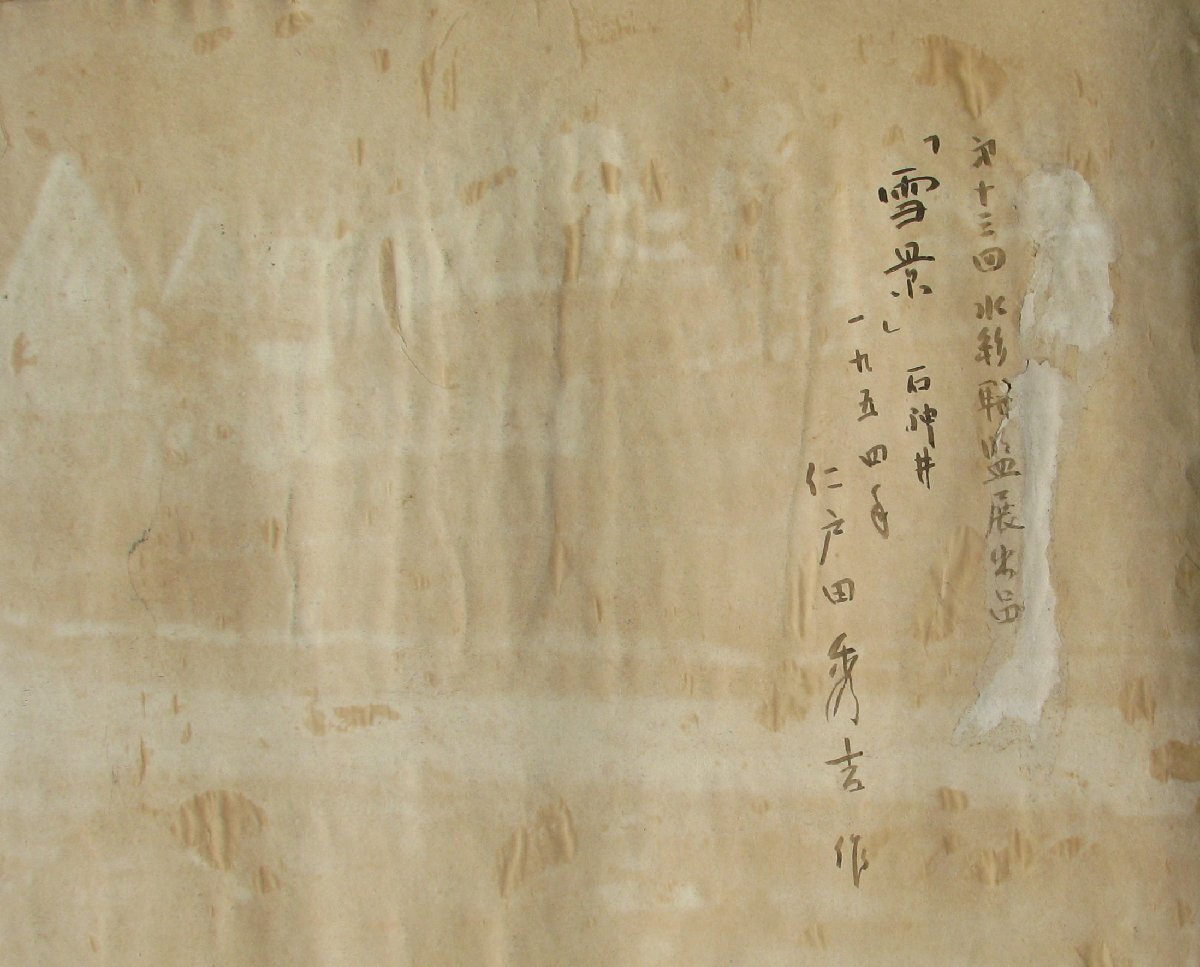 第十三回 水彩聯盟展出品
「雪景」 石神井
一九五四年
仁戸田秀吉 作